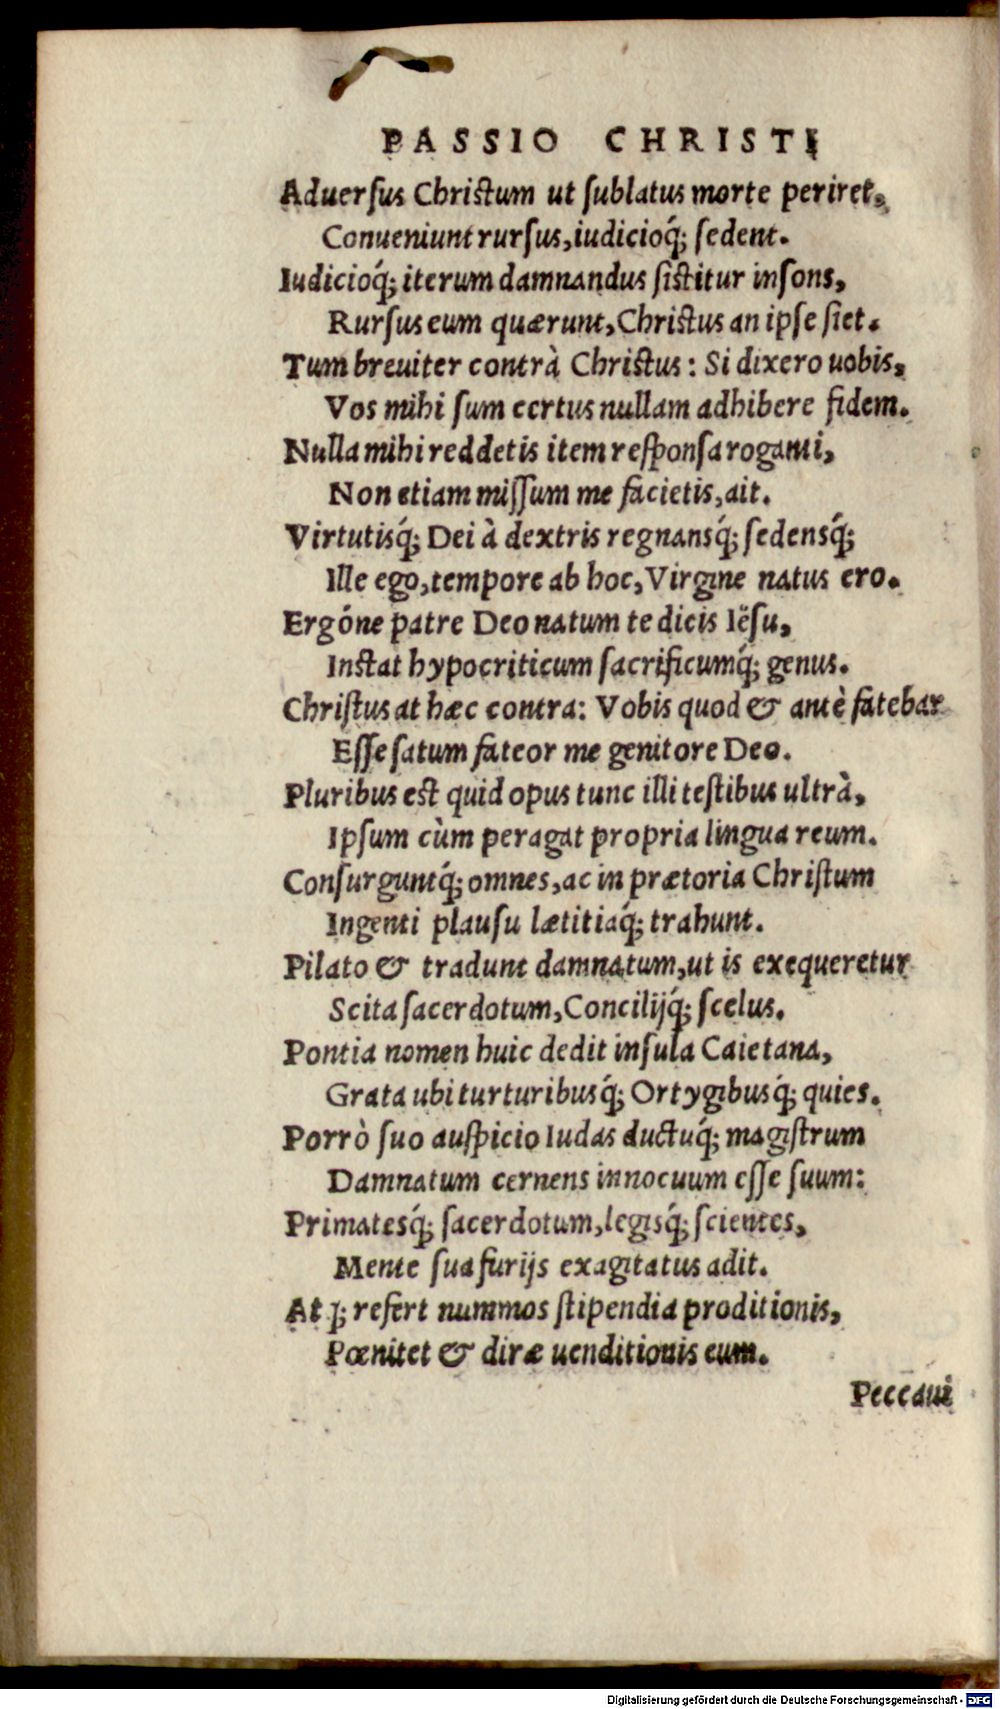 PASSIO CHRISTI
Aduersus Christum ut sublatus morte periret,
Conueniunt rursus, iudicioq́; sedent.
Iudicioq́; iterum damnandus sistitur insons,
Rursus eum quærunt, Christus an ipse siet.
Tum breuiter contrà Christus: Si dixero uobis,
Vos mihi sum certus nullam adhibere fidem.
Nulla mihi reddetis item responsa roganti,
Non etiam missum me facietis, ait.
Virtutisq́; Dei à dextris regnansq́; sedensq́;
Ille ego, tempore ab hoc, Virgine natus ero.
Ergóne patre Deo natum te dicis Iësu,
Instat hypocriticum sacrificumq́; genus.
Christus at hæc contra: Vobis quod & antè fatebar
Esse satum fateor me genitore Deo.
Pluribus est quid opus tunc illi testibus ultrà,
Ipsum cùm peragat propria lingua reum.
Consurguntq́; omnes, ac in prætoria Christum
Ingenti plausu lætitiaq́; trahunt.
Pilato & tradunt damnatum, ut is exequeretur
Scita sacerdotum, Concilijq́; scelus.
Pontia nomen huic dedit insula Caietana,
Grata ubi turturibusq́; Ortygibusq́; quies.
Porrò suo auspicio Iudas ductuq́; magistrum
Damnatum cernens innocuum esse suum:
Primatesq́; sacerdotum, legisq́; scientes,
Mente sua furijs exagitatus adit.
At q; refert nummos stipendia proditionis,
Pœnitet & diræ uenditionis eum.
Peccaui
Digitalisierung gefördert durch die Deutsche Forschungsgemeinschaft - DFG